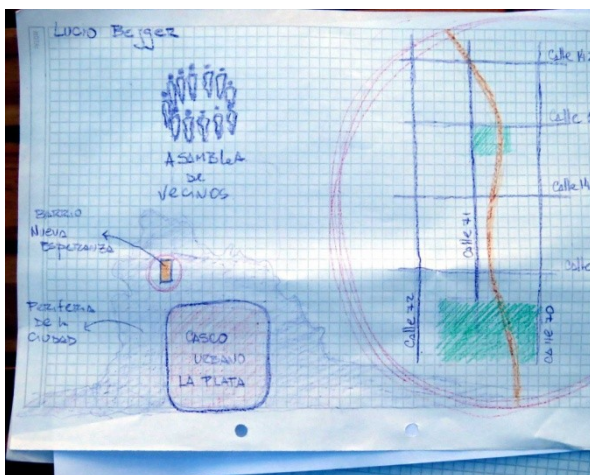 Lucio Begger
ASAMBLeA
De
VeCINOS
BARRIO
NUEVA
ESPERANZA
PERIFERIA
De la
CIUDAD
CASCO
URBANO
LA PLATA
Calle
Calle
Calle
Calle
Calle 72
Calle 71
Calle 70